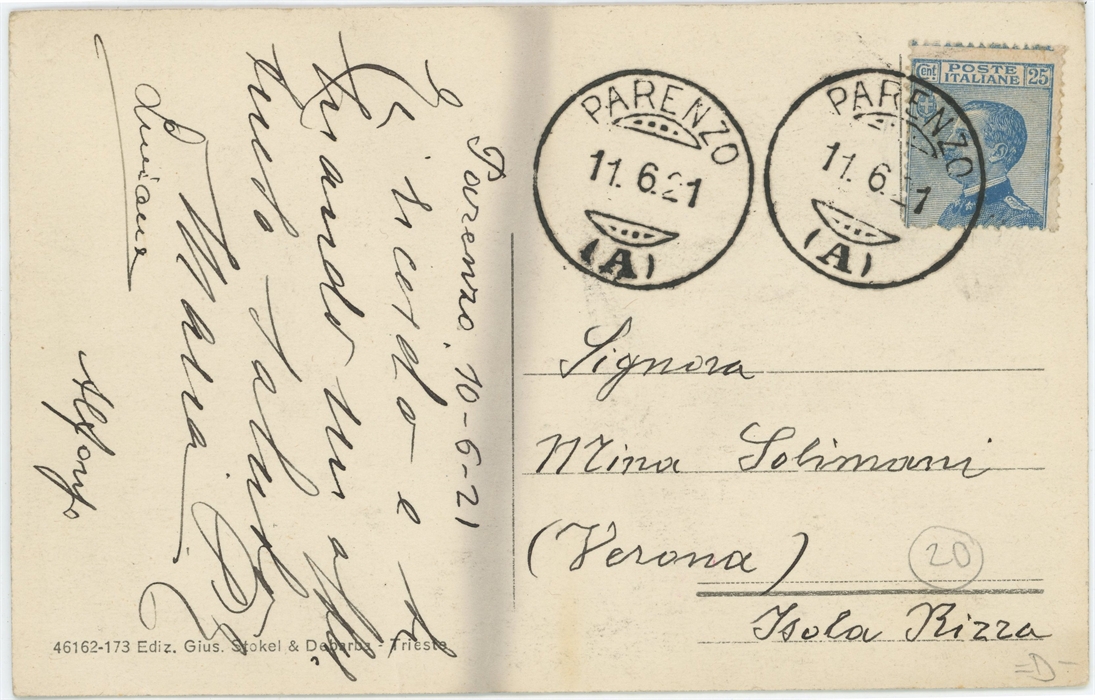 Parenzo, 10-6-21
Ricordo e
mando un aff.
tuoso saluto
Maria
Luciana
Alfonso
46162-173 Ediz. Gius. Stokel & Debarba - Trieste
PARENZO
11.6.21
(A)
PARENZO
11.6.21
(A)
Cent POSTE ITALIANE 25
Signora
Mina Solimani
(Verona)
Isola Rizza
20
=D-